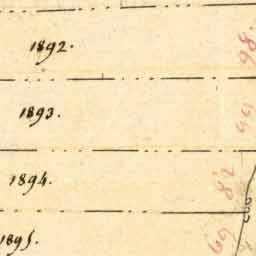 1892.
98.
1893.
99
1894.
82
1895.
69